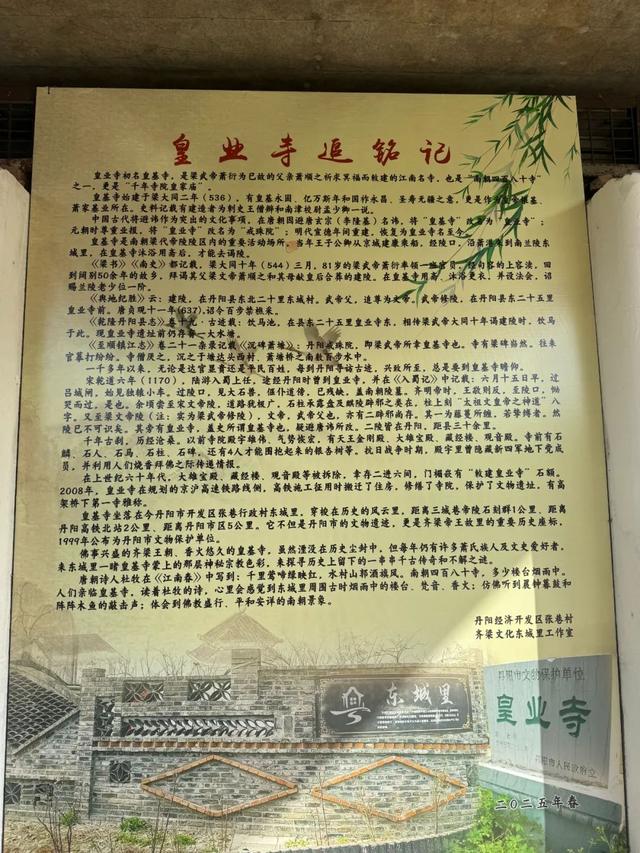 皇业寺追铭记
皇业寺初名皇基寺，是梁武帝萧衍为已故的父亲萧顺之祈求冥福而敕建的江南名寺，也是“南朝四百八十寺”
之一，更是“千年寺院皇家庙”。
皇基寺始建于梁大同二年（536），有皇基永固、亿万斯年和国祚永昌、圣寿无疆之意，更是作为皇帝根基、
萧家基业所在。史料记载有建造者为刺史王僧辩和南津校尉孟少卿一说。
中国古代将避讳作为突出的文化事项，在唐朝因避唐玄宗（李隆基）名讳，将“皇基寺”改名为“皇业寺”；
元朝时尊重业报，将“皇业寺”改名为“戒珠院”；明代宣德年间重建，恢复为皇业寺名至今。
皇基寺是南朝梁代帝陵陵区内的重要活动场所，当年王子公卿从京城建康乘船，经陵口，沿萧港来到兰陵东
城里，在皇基寺沐浴用斋后，才能去谒陵。
《梁书》《南史》都记载，梁大同十年（544）三月，81岁的梁武帝萧衍率领一班官员，经句容的上容渎，回
到阔别50余年的故乡，拜谒其父梁文帝萧顺之和其母献皇后合葬的建陵。在皇基寺用斋、沐浴更衣，并设法会，诏
赐兰陵老少位一阶。
《舆地纪胜》云：建陵，在丹阳县东北二十里东城村。武帝父，追尊为文帝，武帝修陵，在丹阳东二十五里
皇业寺前。唐贞观十一年(637),诏令百步禁樵采。
《乾隆丹阳县志》卷十九·古迹载：饮马池，在县东二十五里皇业寺东，相传梁武帝大同十年谒建陵时，饮马
于此。现皇业寺遗址前仍存有一大水塘。
《至顺镇江志》卷二十一杂录记载《沉碑萧塘》：丹阳戒珠院，即梁武帝所章皇基寺也。寺有梁碑岿然。往来
官摹打纷纷。寺僧厌之，沉之于塘边头西村、萧塘桥之南数百步水中。
一千多年以来，无论是达官显贵还是平民百姓，每到丹阳寻访古迹，兴致所至，总是要到皇基寺瞻仰。
宋乾道六年（1170），陆游入蜀上任，途经丹阳时曾到皇业寺，并在《入蜀记》中记载：六月十五日早，过
吕城闸，始见独辕小车。过陵口，见大石兽，偃仆道傍，已残缺，盖南朝陵墓。齐明帝时，王敬则反，至陵口，恸
哭而过，是也。余顷尝至宋文帝陵，道路犹极广，石柱承露盘及麒麟辟邪之类在。柱上刻“太祖文皇帝之神道”八
字，又至梁文帝陵（注：实为梁武帝修陵），文帝，武帝父也，亦有二辟邪尚存。其一为藤蔓所缠，若絷缚者。然
陵已不可识矣。其旁有皇业寺，盖史所谓皇基寺也，疑避唐讳所改。二陵皆在丹阳，距县三十余里。
千年古刹，历经沧桑。以前寺院殿宇雄伟、气势恢宏，有天王金刚殿、大雄宝殿、藏经楼、观音殿。寺前有石
麟、石人、石马、石柱、石碑，还有4人才能围抱起来的银杏树等。抗日战争时期，殿宇里曾隐藏新四军地下党成
员，并利用人们烧香拜佛之际传递情报。
在上世纪六十年代，大雄宝殿、藏经楼、观音殿等被拆除，幸存二进六间，门楣嵌有“敕建皇业寺”石额。
2008年，皇业寺在规划的京沪高速铁路线侧，高铁施工征用时搬迁了住房，修缮了寺院，保护了文物遗址，有高
架桥下第一寺雅称。
皇基寺坐落在今丹阳市开发区张巷行政村东城里，穿梭在历史的风云里，距离三城巷帝陵石刻群1公里、距离
丹阳高铁北站2公里、距离丹阳市区5公里。它不但是丹阳市的文物遗迹，更是齐梁帝王故里的重要历史座标，
1999年公布为丹阳市文物保护单位。
佛事兴盛的齐梁王朝、香火悠久的皇基寺，虽然湮没在历史尘封中，但每年仍有许多萧氏族人及文史爱好者，
来东城里一睹皇基寺蒙上的那层神秘宗教色彩，来探寻历史上留下的一串串千古传奇和不解之谜。
唐朝诗人杜牧在《江南春》中写到：千里莺啼绿映红，水村山郭酒旗风。南朝四百八十寺，多少楼台烟雨中。
人们亲临皇基寺，读着杜牧的诗，心里会感觉到东城里周围古时烟雨中的楼台、梵音、香火；仿佛听到晨钟暮鼓和
阵阵木鱼的敲击声；体会到佛教盛行、平和安详的南朝景象。
丹阳经济开发区张巷村
齐梁文化东城里工作室
东城里
丹阳市文物保护单位
皇业寺
丹阳市人民政府立
二〇二五年春